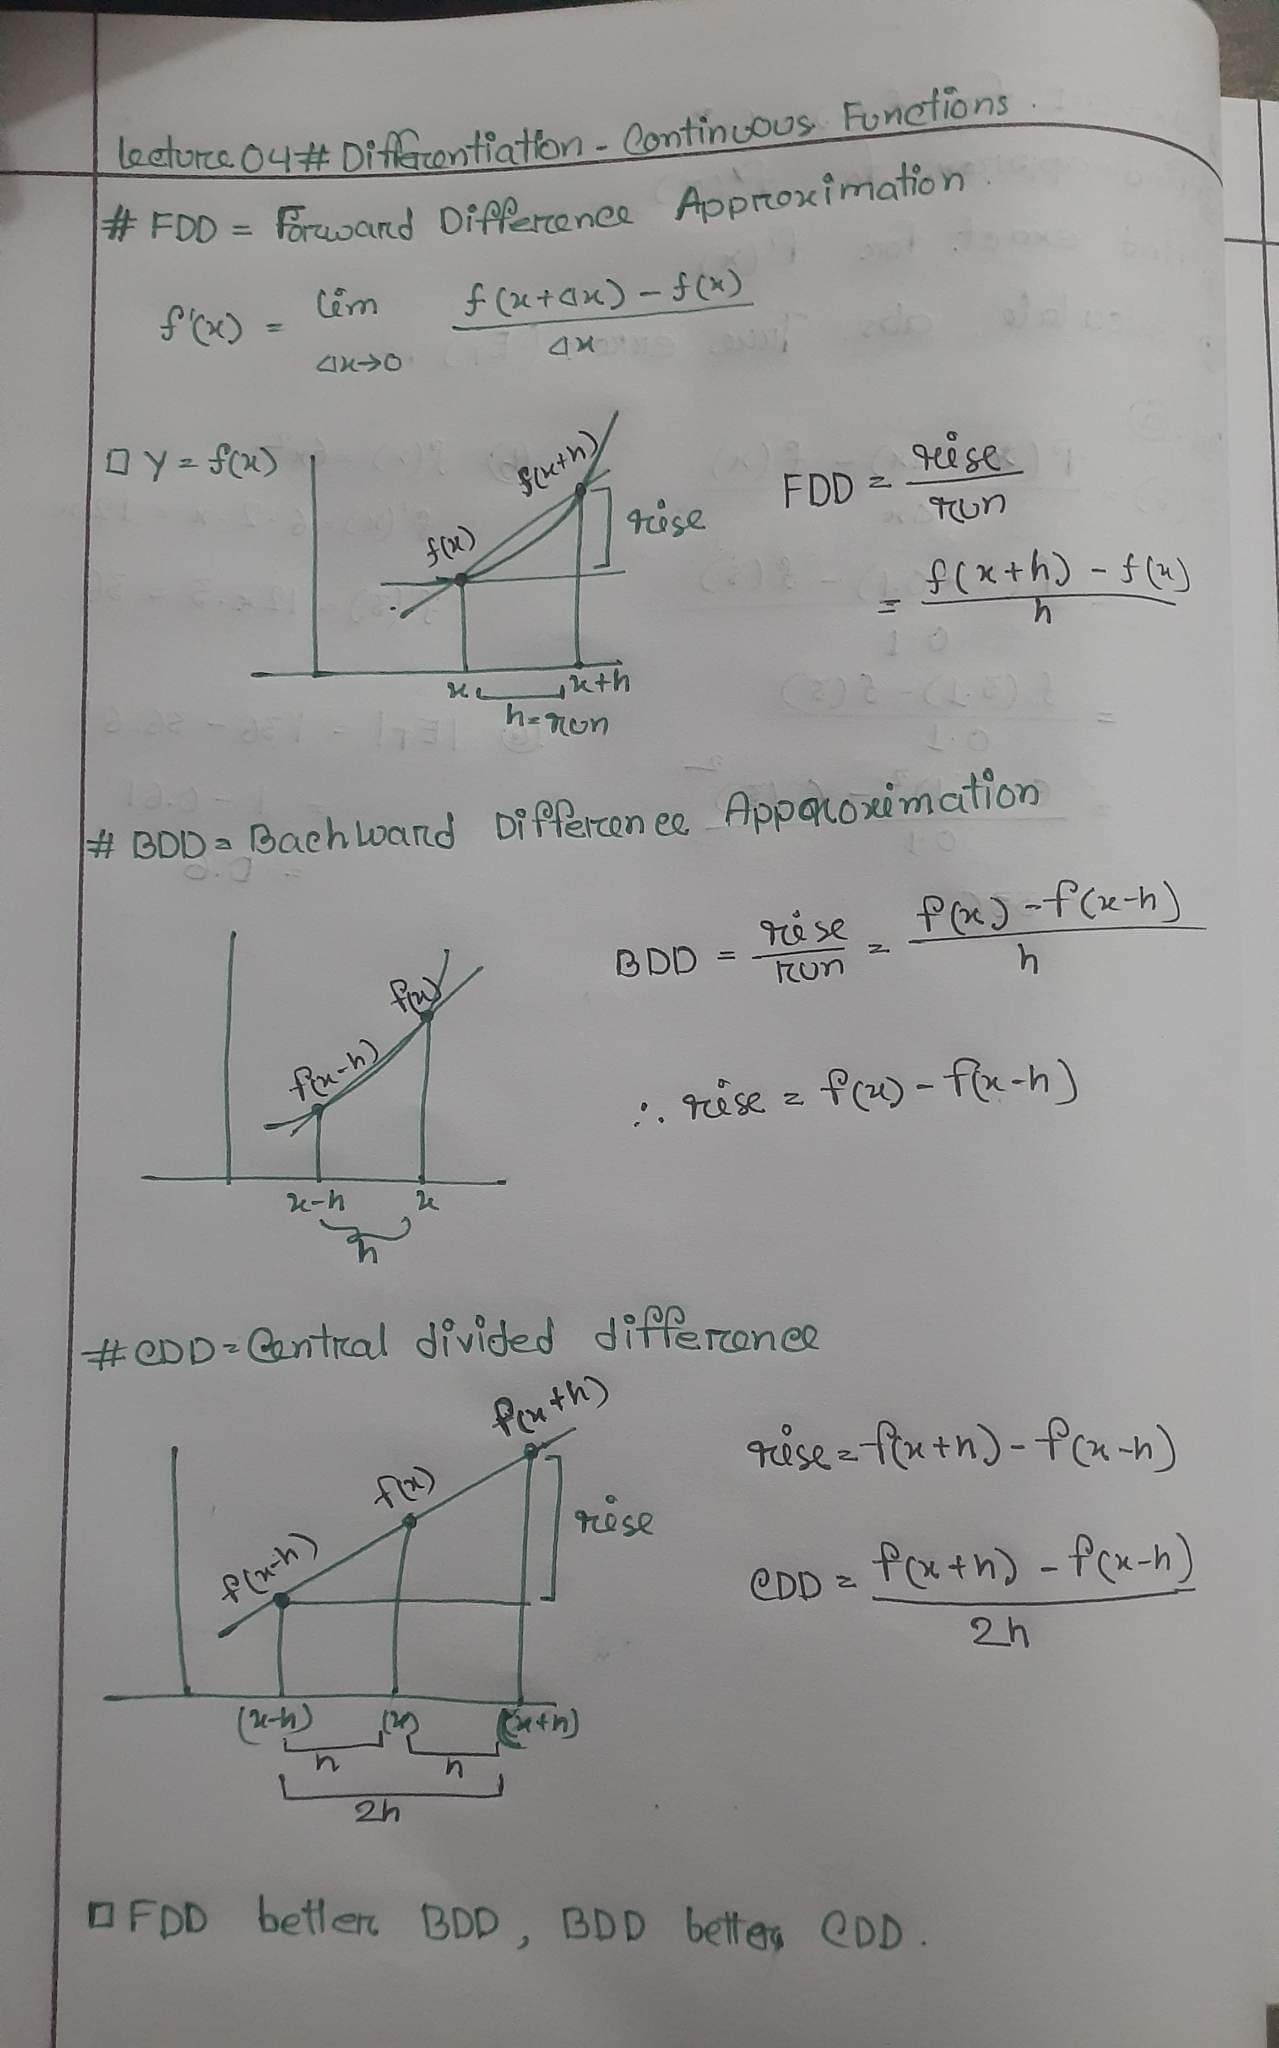 Lecture 04# Differentiation - Continuous Functions.
# FDD = Forward Difference Approximation.
f'(x) = lim Δx→0 f(x+Δx) - f(x) / Δx
□ Y = f(x)
f(x)
f(x+h)
rise
x
x+h
h=run
FDD = rise / run
= f(x+h) - f(x) / h
# BDD = Bachward Difference Approximation
f(x-h)
f(x)
x-h
x
h
BDD = rise / run = f(x) - f(x-h) / h
∴ rise = f(x) - f(x-h)
# CDD = Central divided difference
f(x-h)
f(x)
f(x+h)
rise
(x-h)
(x)
(x+h)
h
h
2h
rise = f(x+h) - f(x-h)
CDD = f(x+h) - f(x-h) / 2h
□ FDD better BDD, BDD better CDD.